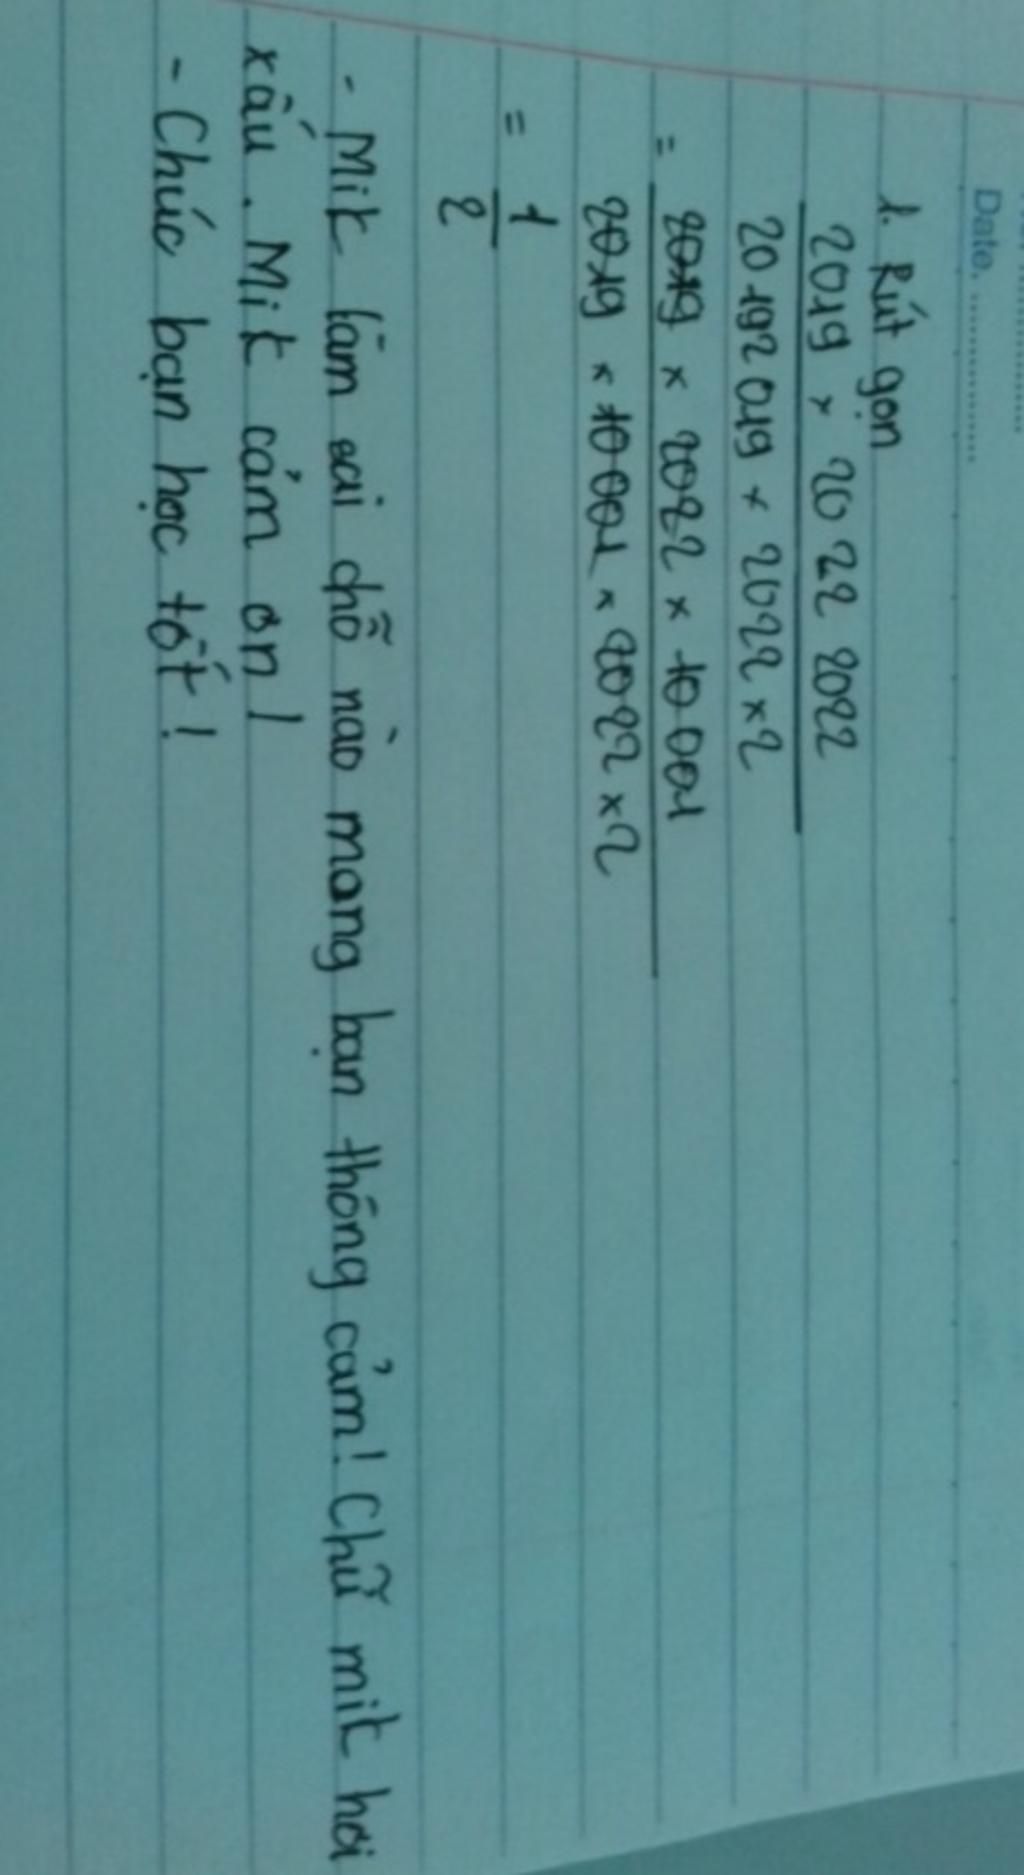 Date. ....................
1. Rút gọn
2019 × 20 22 2022
20 192 019 × 2022 × 2
= 2019 × 2022 × 10 001
2019 × 10 001 × 2022 × 2
= 1
2
- Mik làm sai chỗ nào mong bạn thông cảm! Chữ mik hơi
xấu. Mik cảm ơn!
- Chúc bạn học tốt!